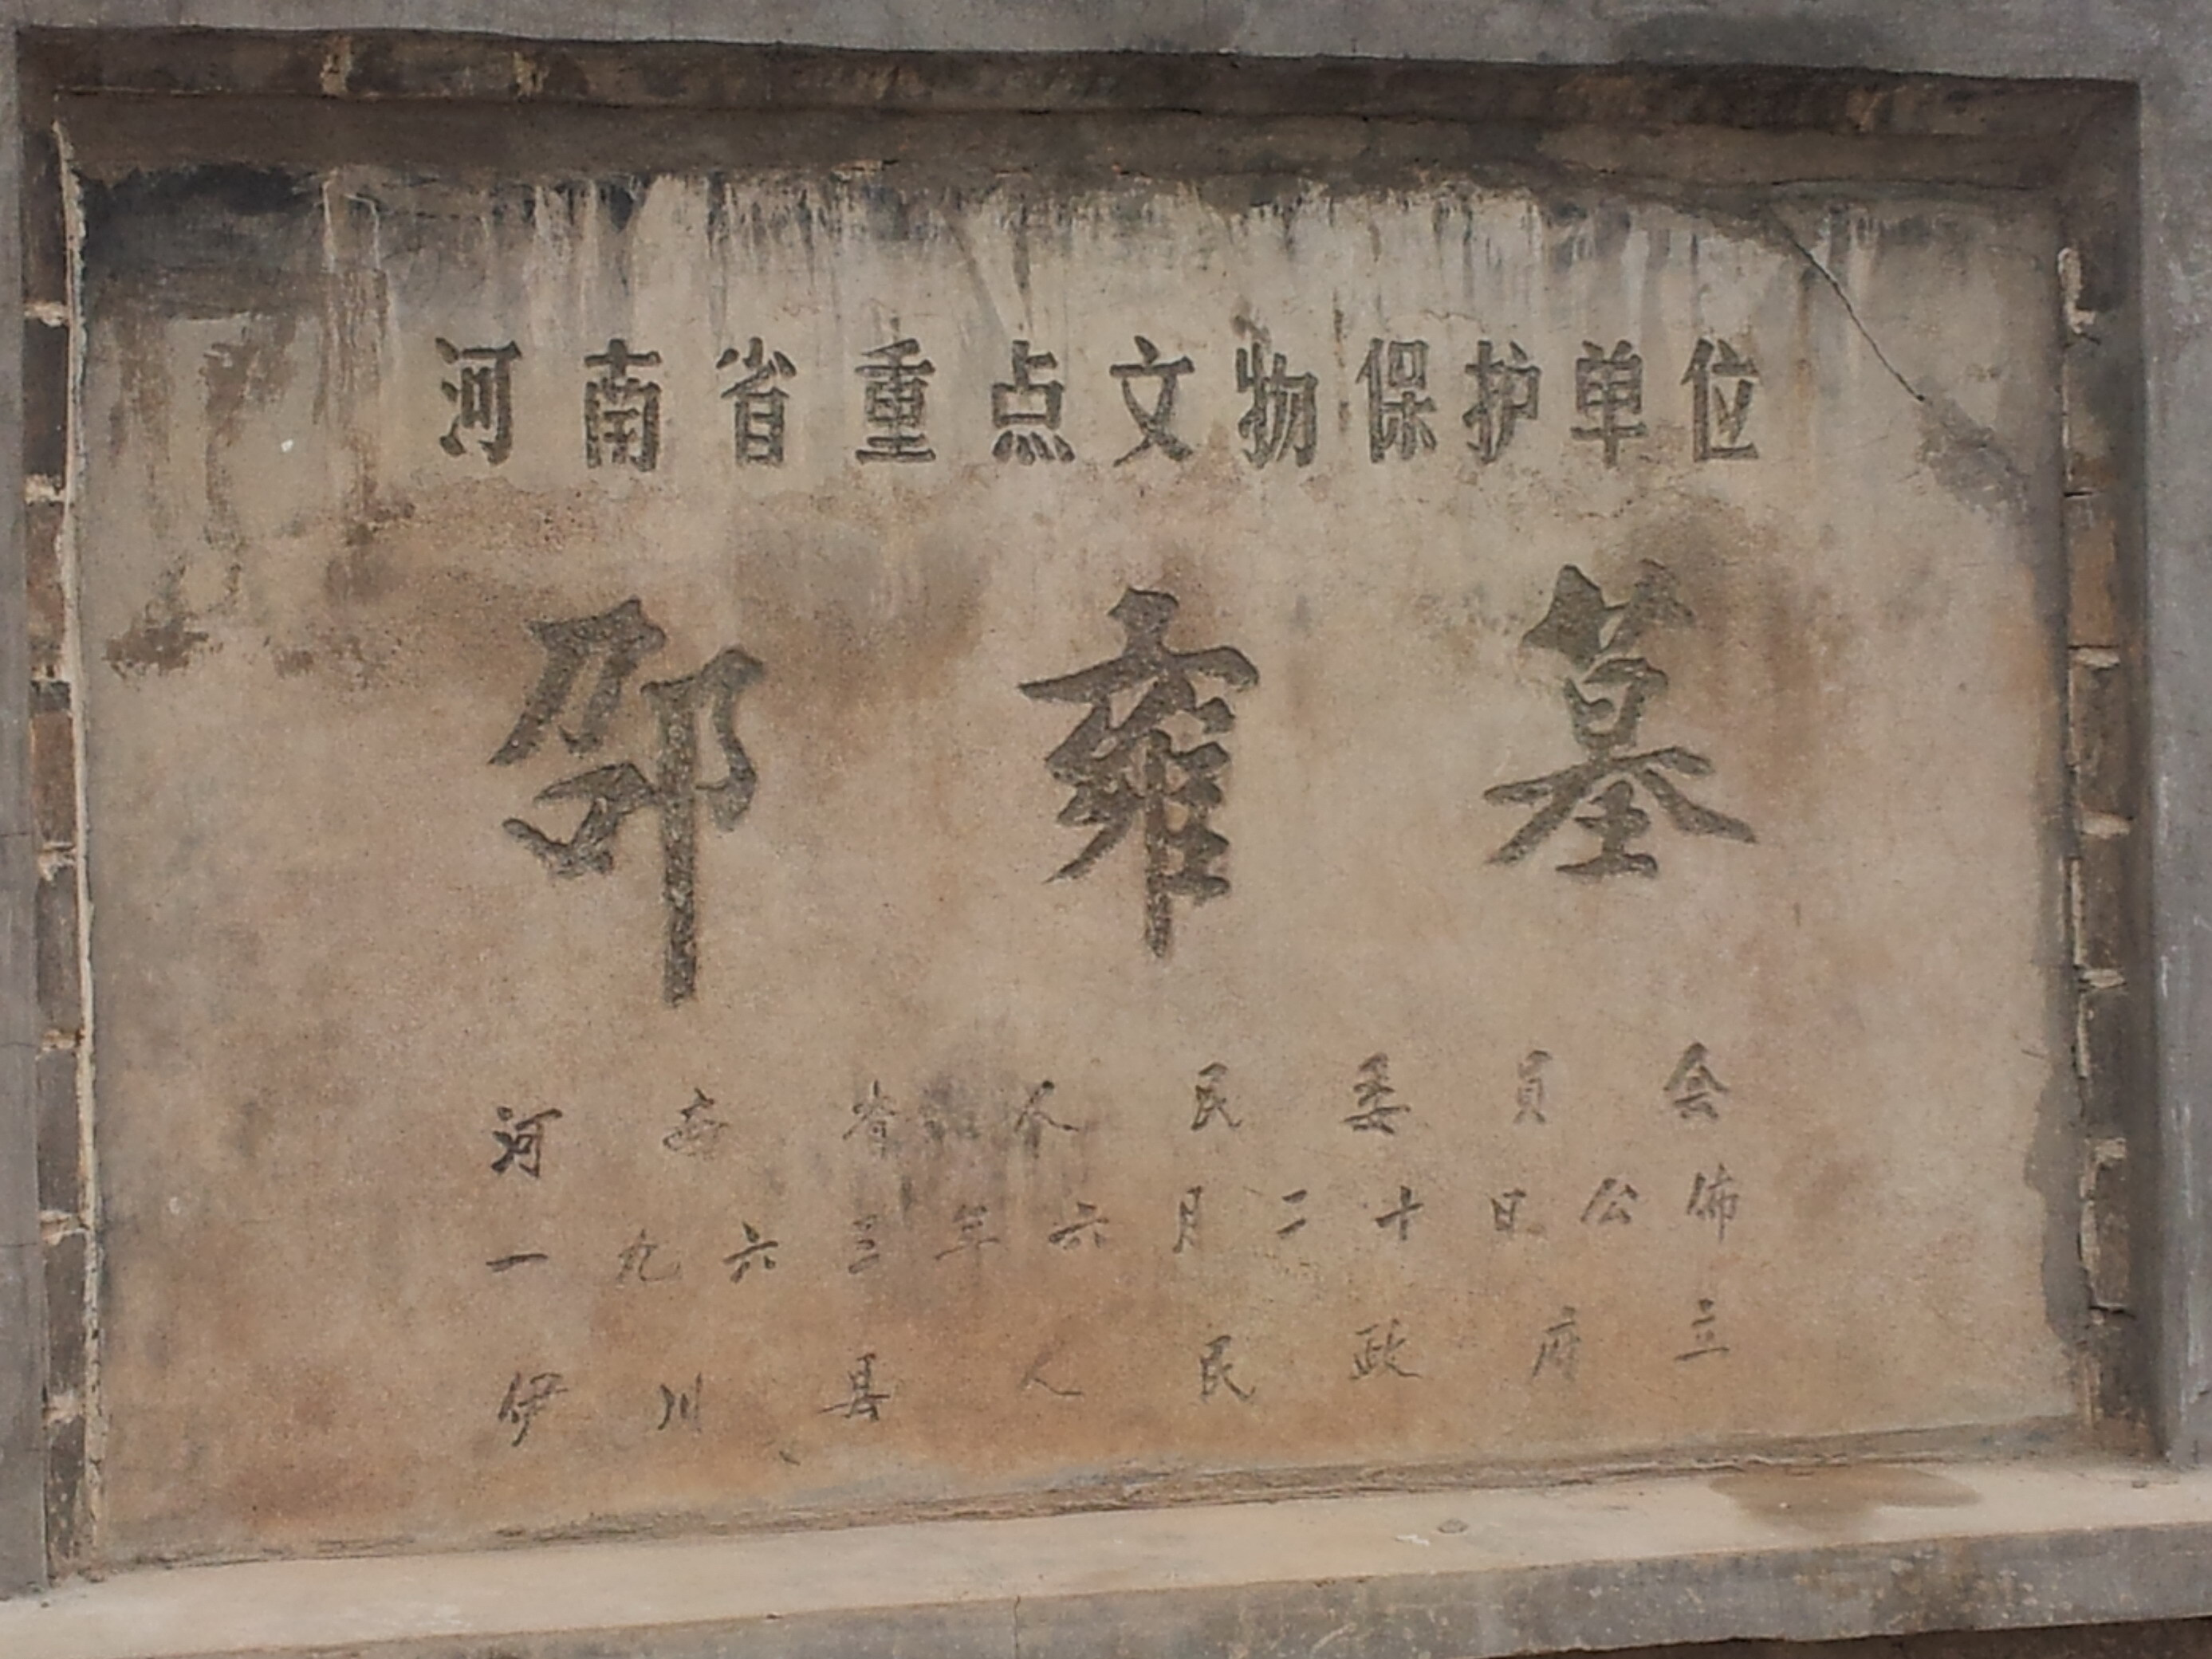 河南省重点文物保护单位
邵雍墓
河南省人民委员会
一九六三年六月二十日公佈
伊川县人民政府立